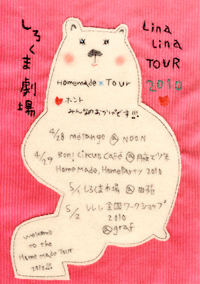 しろくま劇場
Lina
Lina
TOUR
2010
Homemade * Tour
ホント
みんなのおかげです!!!
4/28 melange @ NOON
4/29 Bon! Circus Café @
Home Made, Home Party 2010
5/1 しろくま市場 @
5/2 全国ワークショップ
2010
@graf
welcome
to the
Home made Tour
2010